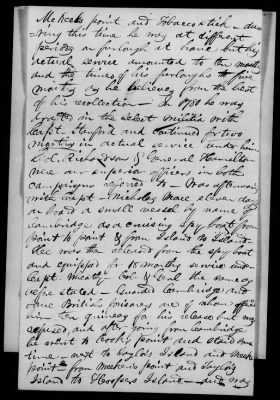 McKeels point and Tobaccostick - du-
ring this time he may at different
periods on furlough at home but his
actual service amounted to the months
and the times of his furloughs to five
months as he believes from the best
of his recollection - In 1780 he was
drafted in the Select Militia with
Capt Stanford and continued for two
months in actual service under him
Col. Richardson & General Hamilton
were our superior officers in both
campaigns referred to - Was afterwards
with Capt Nicholas Mace eleven days
on board a small vessel by name of
Cambridge as a cruising spy boat from
point to point & from Island to Island
He was then released from the spy boat
and equipped for 18 months service under
Capt Wheatly Col & Genl the same as
before stated - Guarded Cambridge and
some British prisoners one of whom offered
him ten guineas for his release but was
refused, and after going from Cambridge
he went to Cooks point and staid some
time - next to Taylors Island and Meekins
point - from Meekins point and Taylors
Island to Hoopers Island - and may